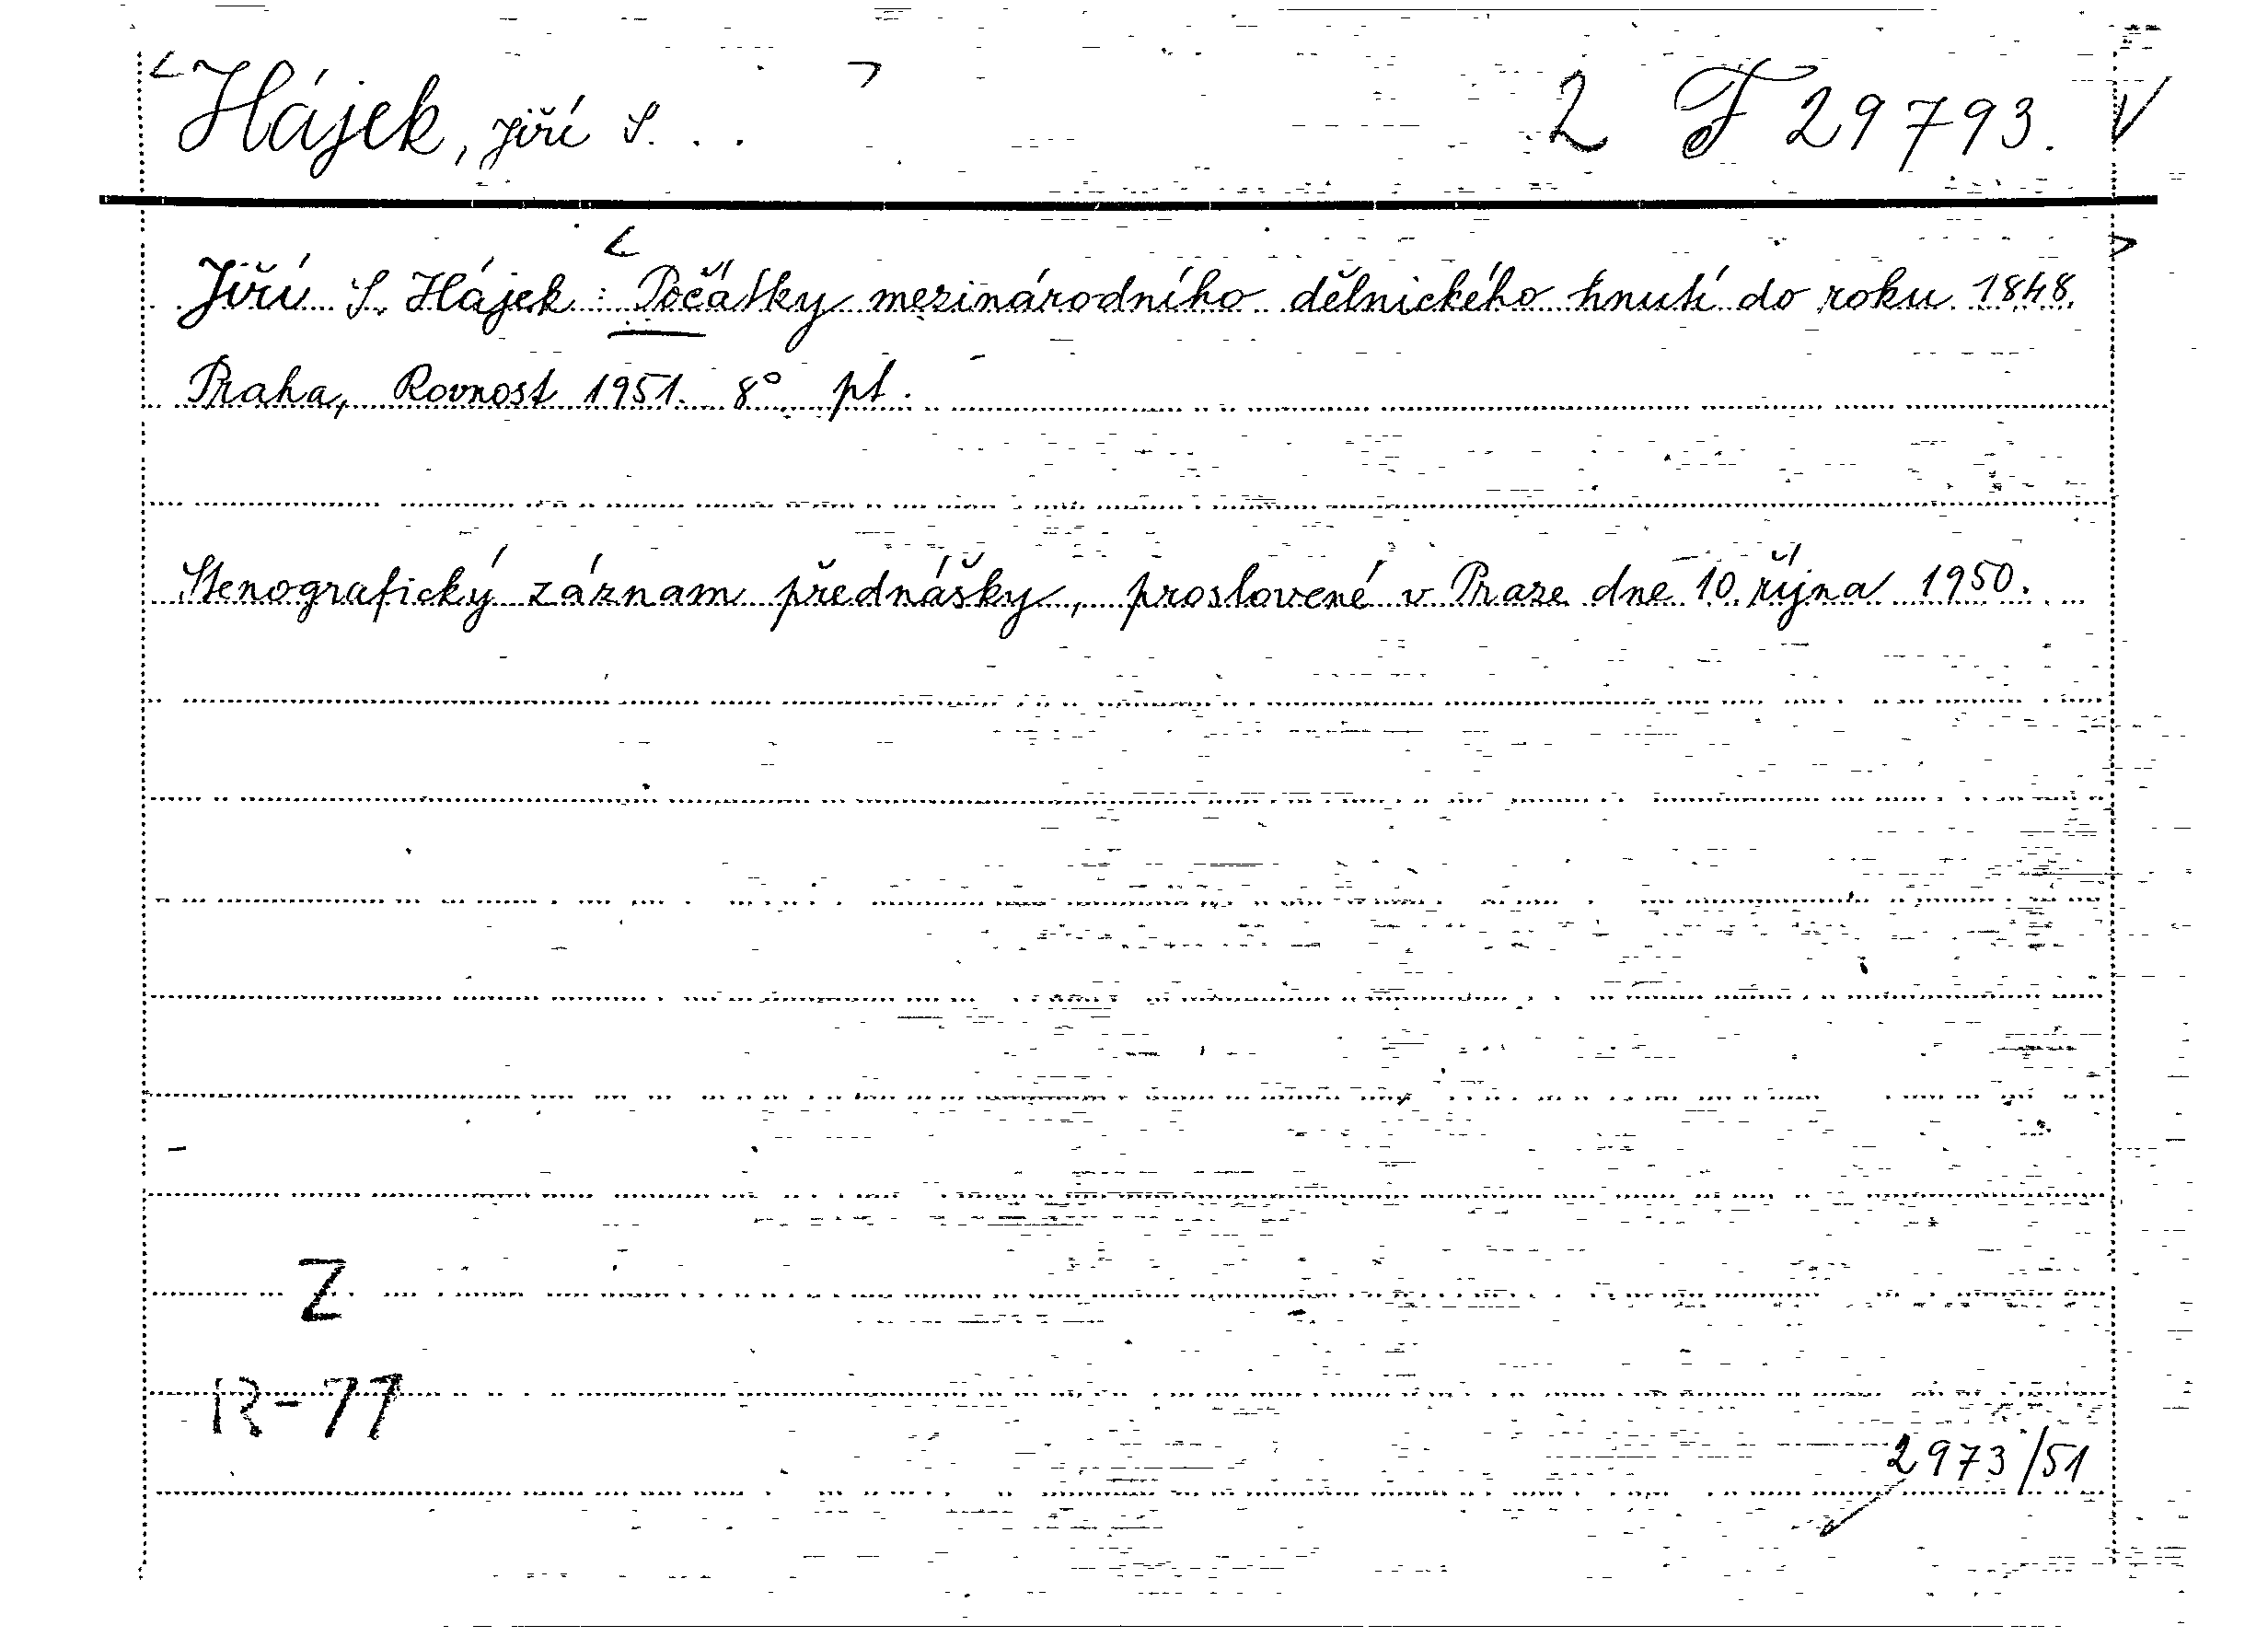 Hájek, Jiří S. . . 2 F 29793. V
Jiří S. Hájek: Počátky mezinárodního dělnického hnutí do roku 1848.
Praha, Rovnost 1951. 8° pt.
Stenografický záznam přednášky, proslovené v Praze dne 10. října 1950.
Z
R-77
2973/51